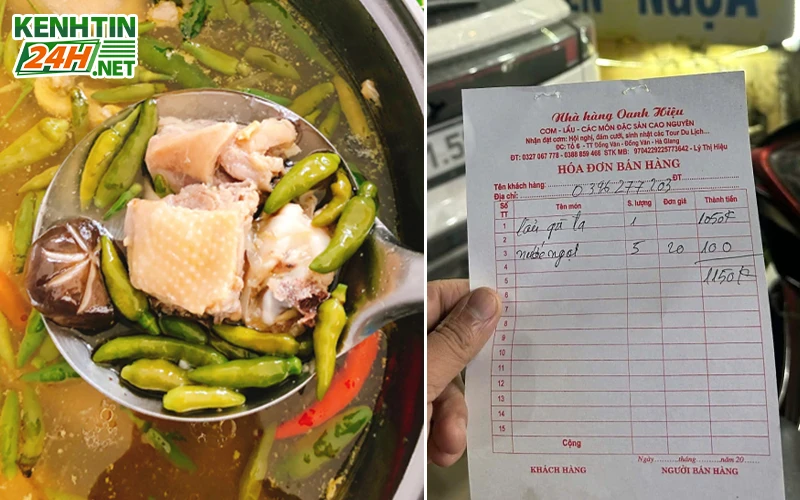 KENHTIN
24H
.NET
NGỰA
Nhà hàng Oanh Hiệu
CƠM - LẨU - CÁC MÓN ĐẶC SẢN CAO NGUYÊN
Nhận đặt cơm: Hội nghị, đám cưới, sinh nhật các Tour Du Lịch...
ĐC: Tổ 6 - TT Đồng Văn - Đồng Văn - Hà Giang
ĐT: 0327 067 778 - 0368 859 466 STK MB: 9704229225773642 - Lý Thị Hiệu
HÓA ĐƠN BÁN HÀNG
Tên khách hàng: ĐT
Địa chỉ: 0396277203
Số TT Tên món S. lượng Đơn giá Thành tiền
1 lẩu gà ta 1 1050k
2
3 nước ngọt 5 20 100
4
5 1150k
6
7
8
9
10
11
12
13
14
15
Cộng
Ngày tháng năm 20
KHÁCH HÀNG NGƯỜI BÁN HÀNG